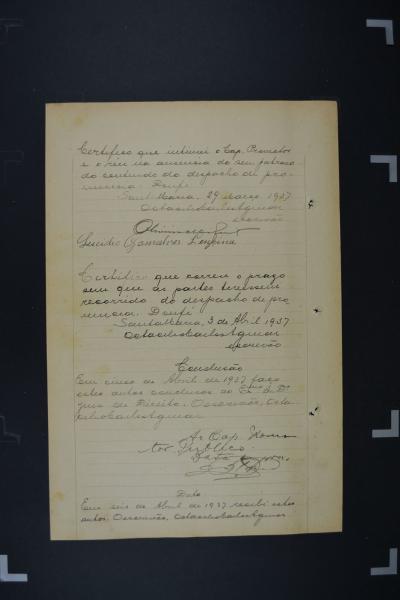 Certifico que intimei o Cap. Promotor
e o réu na ausencia do seu patrono
do conteudo do despacho de pro-
nuncia. Doufé
Santa Maria, 29 março 1937
Octacilio Carlos Aguiar
escrivão
Lucidio Gonçalves
Certifico que correu o prazo
sem que as partes tivessem
recorrido do despacho de pro
nuncia. Doufé
Santa Maria, 3 de Abril 1937
Octacilio Carlos Aguiar
escrivão
Conclusão
Em cinco de Abril de 1937 faço
estes autos conclusos ao Dr.
Juiz de Direito. O escrivão, Octa
cilio Carlos Aguiar
Ao Cap. Promo
tor Publico
Data
Em seis de Abril de 1937 recebi estes
autos. O escrivão, Octacilio Carlos Aguiar